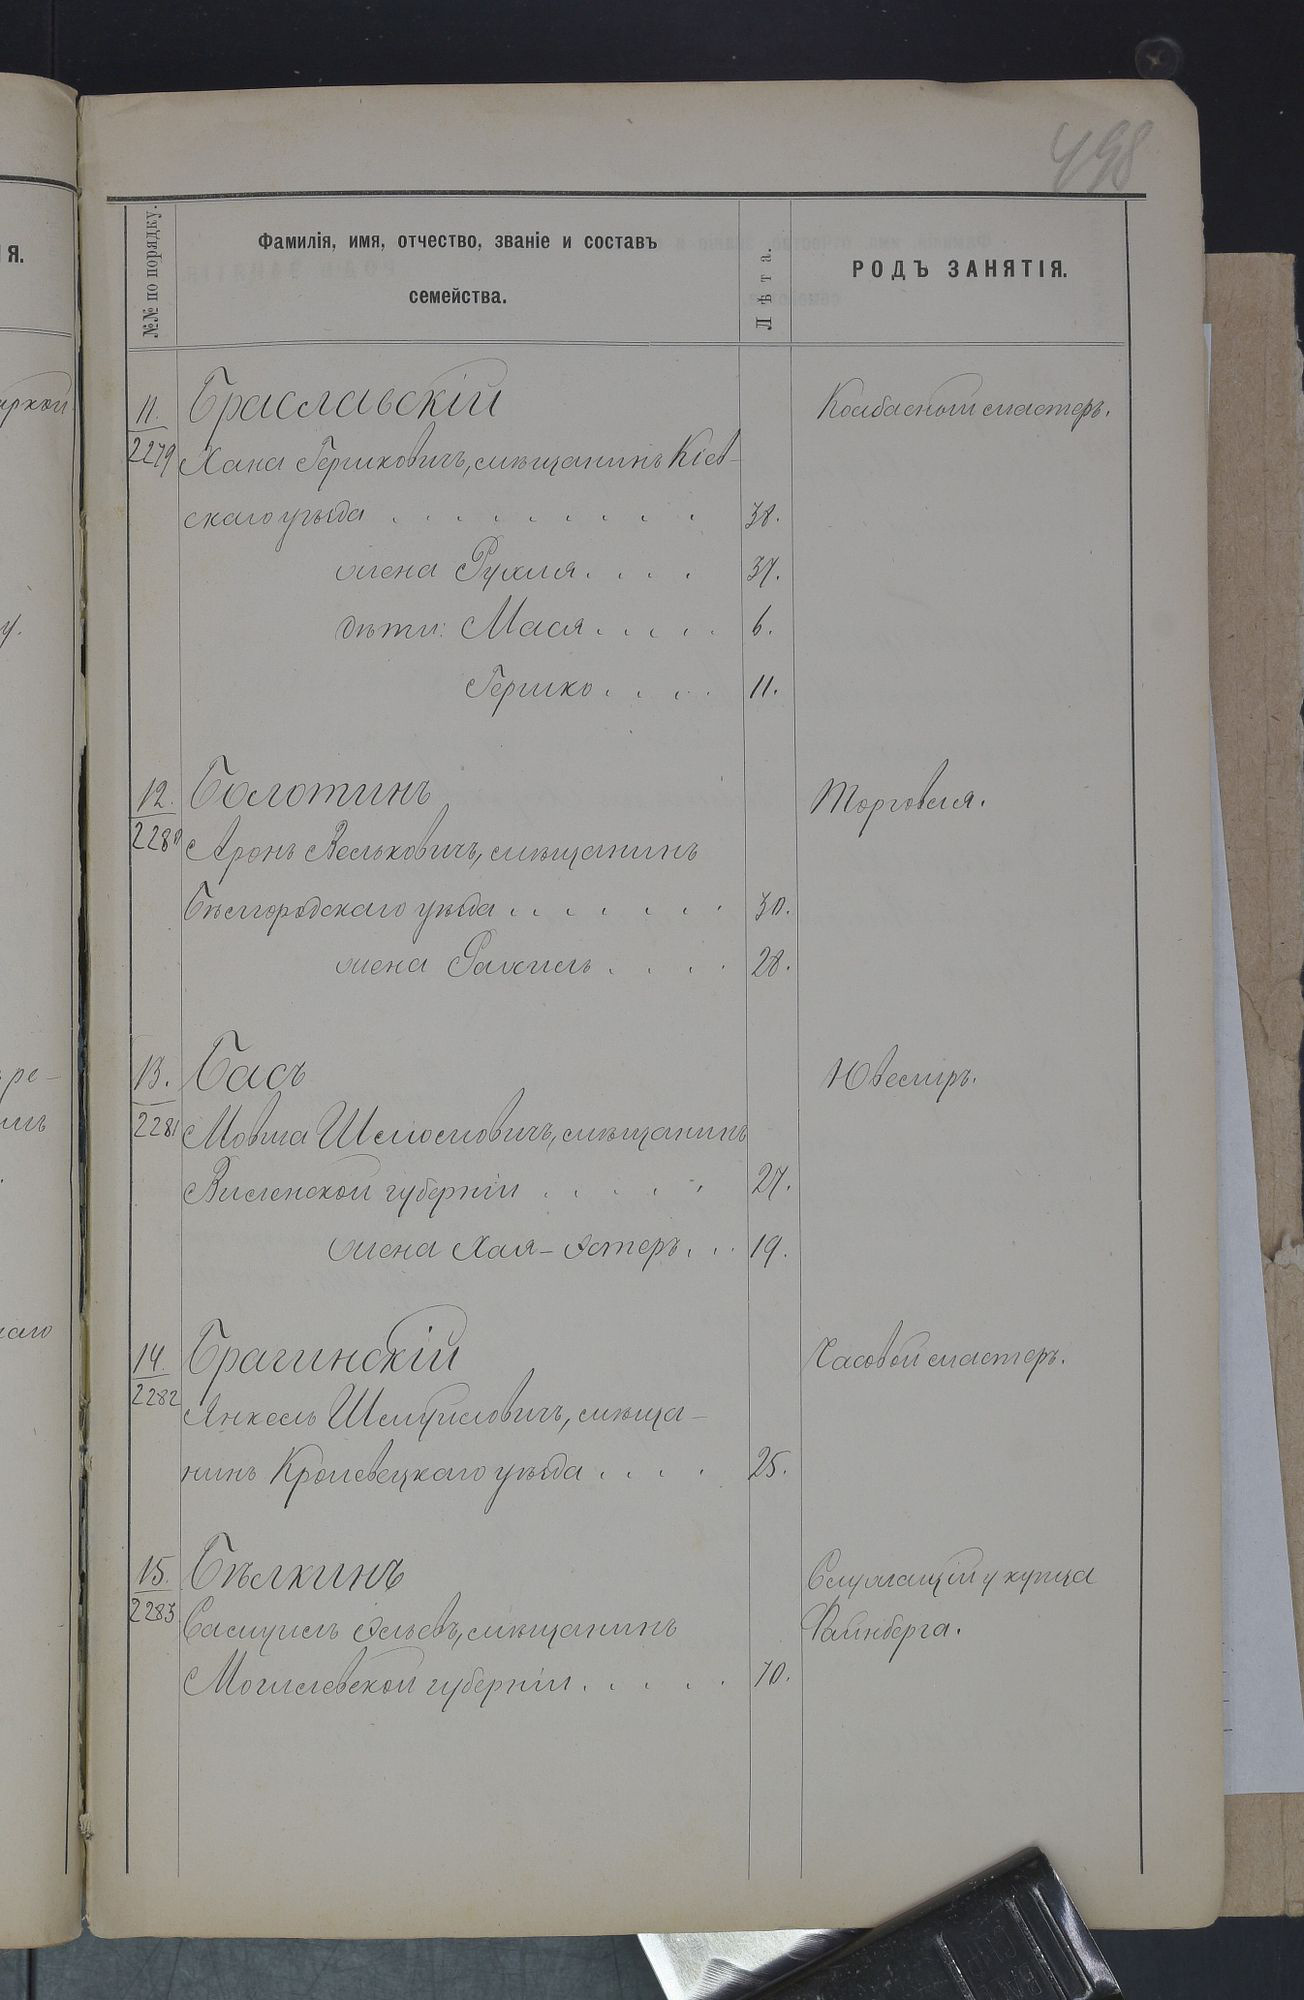 498
№№ по порядку.
Фамилія, имя, отчество, званіе и составъ
семейства.
Лѣта.
РОДЪ ЗАНЯТІЯ.
11. Браславскій Колбасный мастеръ.
2279 Хана Гершковичъ, мѣщанинъ Кіев-
скаго уѣзда . . . . . . . . . 38.
жена Рухля . . . . 37.
дѣти: Мася . . . . . 6.
Гершко . . . . 11.
12. Болотинъ Торговля.
2280 Аронъ Вельковичъ, мѣщанинъ
Бѣлгородскаго уѣзда . . . . . . . 30.
жена Рахиль . . . . 28.
13. Басъ Ювелиръ.
2281 Мовша Шлиомовичъ, мѣщанинъ
Виленской губерніи . . . . . 27.
жена Хая-Эстеръ . . . 19.
14. Брагинскій Часовой мастеръ.
2282 Янкель Шмуйловичъ, мѣща-
нинъ Кролевецкаго уѣзда . . . . 25.
15. Бѣлкинъ Служащій у купца
2283 Самуилъ Эльевъ, мѣщанинъ Файнберга.
Могилевской губерніи . . . . . 70.
ІЯ.
ркой
у.
ре-
каго